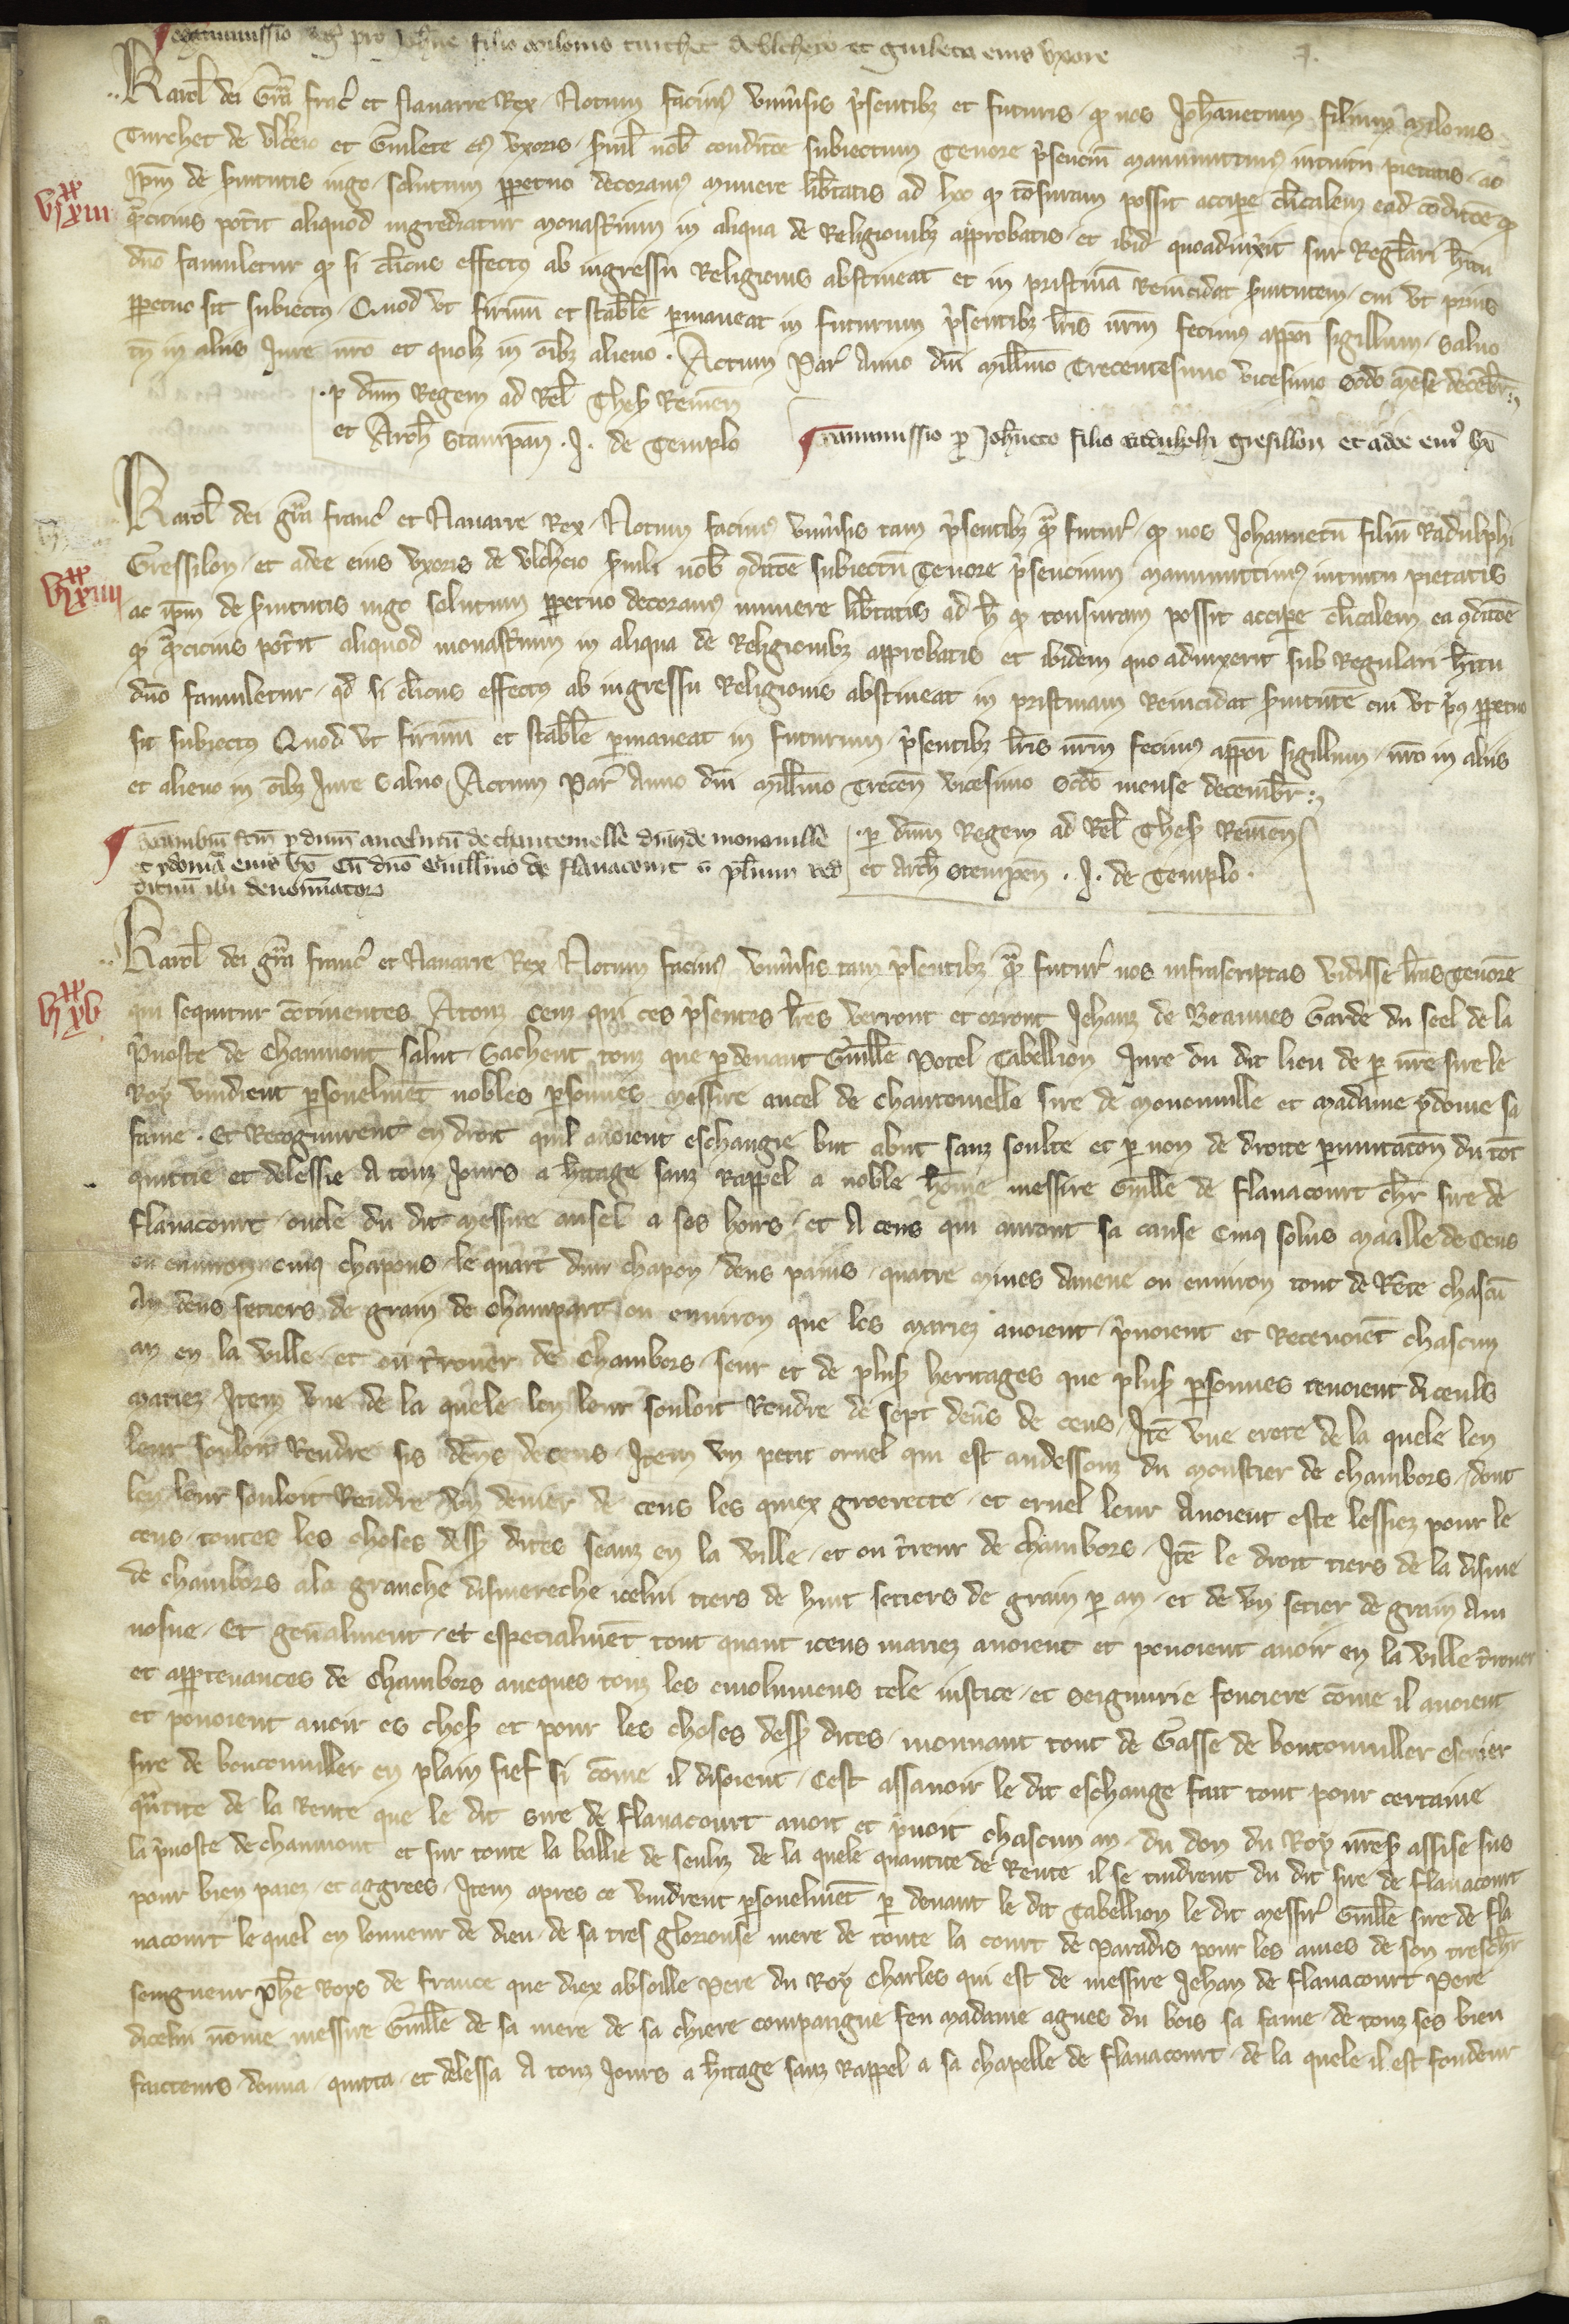 pro Johne filio milonis turchet de Ulcheyo et guilleta eius uxore
Karol dei gra franc et Navarre Rex. Notum facimus univsis psentibz et futuris q nos Johanetum filium milonis
Turchet de Ulcheio et Guilete eius uxoris svuil nob condicoe subiectum Tenore psencium manumittimus intuitu pietatis ac
ipm de svitutis iugo solutum ppetuo decoramus munere libtatis ad hoc q tonsuram possit accipe clicalem ead condicoe q
qcicius potit aliquod ingrediatur monastium in aliqua de Religionibz approbatis et ibid quoadvixit sur Reglari hitu
dno famuletur q si clicus effectus ab ingressu Religionis abstineat et in pristina Reincidat svitutem cui ut prius
ppetuo sit subiectus. Quod ut firmum et stabile pmaneat in futurum psentibz lris nrm fecimus apponi sigillum. Salvo
tn in aliis Jure nro et quolz in oibz alieno. Actum Par Anno dni millmo Trecentesimo vicesimo scdo mense decebr
VIxx XIII
p dnm Regem ad Rel Thes Remen
et Arch Stampan. J. de Templo
Manumissio p Johneto filio radulphi gresillon et adee eius ux
Karol dei gra franc et Navarre Rex. Notum facimus univsis tam psentibz q futur q nos Johannetu filiu Radulphi
Gressilon et adee eius uxoris de Ulcheio svuili nob gdicoe subiectu Tenore psencium manumittimus intuitu pietatis
VIxx XIIII
ac ipm de svitutis iugo solutum ppetuo decoramus munere libtatis ad h q tonsuram possit accipe clicalem ea gdicoe
q qcicius potit aliquod monastium in aliqua de Religionibz approbatis et ibidem quo advixerit sub Regulari hitu
dno famuletur qd si clicus effectus ab ingressu Religionis abstineat in pristinam Reincidat svitute cui ut pus ppetuo
sit subiectus Quod ut firmum et stabile pmaneat in futurum psentibz lris nrm fecimus apponi sigillum nro in aliis
et alieno in oibz Jure Salvo Actum Par Anno dni millmo Trecen vicesimo scdo mense decembr
fcm p dnm ancelinu de chantemelle dnm de mononville
et ydonia eius ux cu dno Guillmo de flavacourt
ibi denominator
p dnm Regem ad Rel Thes Remen
et Arch Stempen. J. de Templo.
Karol dei gra franc et Navarre Rex Notum facimus univsis tam psentibz q futur nos infrascriptas vidisse lras tenore
VIxx XV
qui sequitur continentes. A touz ceus qui ces psentes lres verront et orront Jehanz de Beannes Garde du seel de la
pvoste de Chaumont salut. Sachent touz que p devant Guille Potel Tabellion Jure du dit lieu de p nre sire le
Roy vindient psonelmet nobles psonnes messire ancel de Chantemelle sire de mononville et madame ydoine sa
fame. Et Recognurent en droit quil avoient eschangie but abut sanz soulte et p non de droite pmutacon du tot
quittie et delessie A touz Jours a hitage sanz Rappel a noble home messire Guille de flavacourt chr sire de
flavacourt oncle du dit messire ansel a ses hoirs et A ceus qui auront sa cause Cinq solus maalle de Cens
ou environ cinq chapons le quart dun chapon deus pains quatre mines daveine ou environ tout de Rete chascu
An deus setiers de grain de Champart ou environ que les mariez avoient pnoient et Recevoiet chascun
an en la ville et ou trouer de Chambors seur et de plus heritages que plus psonnes tenoient diceuls
mariez Item une de la quele len leur souloit Rendre de sept deus de cens. Ite une crote de la quele len
leur souloit Rendre sis deus de cens. Item un petit oruel qui est audessouz du moustier de chambors dont
len leur souloit Rendre un denier de cens les quiex groerette et oruel leur Avoient este lessiez pour le
cens toutes les choses dess dites seanz en la ville et ou treur de chambors. Ite le droit tiers de la disme
de chambors ala granche dismereche icelui tiers de huit setiers de grain p an et de un setier de grain Au
nosne. Et genalment et especialmet tout quant iceus mariez avoient et povoient avoir en la ville
et apptenances de Chambors aveques touz les emolumens tele justice et seignurie fonciere come il avoient
et povoient avoir es choses et pour les choses dess dites mouvant tout de Gasse de bouconviller escuier
sire de bouconviller en plain fief si come il disoient. Cest assavoir le dit eschange fait tout pour certaine
qntite de la Rente que le dit sire de flavacourt avoit et pnoit chascun an du don du Roy nres assise sus
la pvoste de chaumont et sur toute la ballie de senliz de la quele quantite de Rente il se tindrent du dit sire de flavacourt
pour bien paiez et aggrees. Item apres ce vindrent psonelmet p devant le dit tabellion le dit messir Guille sire de fla
vacourt le quel en lonneur de dieu de sa tres gloriouse mere de toute la court de Paradis pour les ames de son treschr
seingneur phe Roys de france que diex absoille Pere du Roy Charles qui est de messire Jehan de flavacourt Pere
dicelui nome messire Guille de sa mere de sa chiere compaigne feu madame agnes du bois sa fame de touz ses bien
faicteurs donna quitta et delessa A touz Jours a hitage sanz Rappel a sa chapelle de flavacourt de la quele il est fondeur